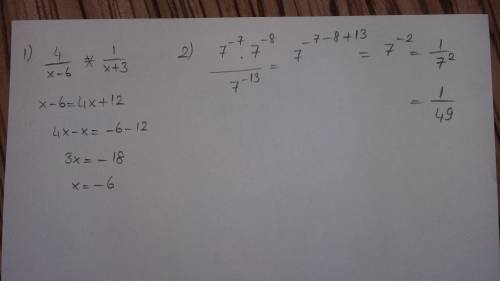 1) 4/(x-6) * 1/(x+3)
x-6=4x+12
4x-x=-6-12
3x=-18
x=-6
2) (7^-7 . 7^-8)/7^-13 = 7^-7-8+13 = 7^-2 = 1/7^2
= 1/49